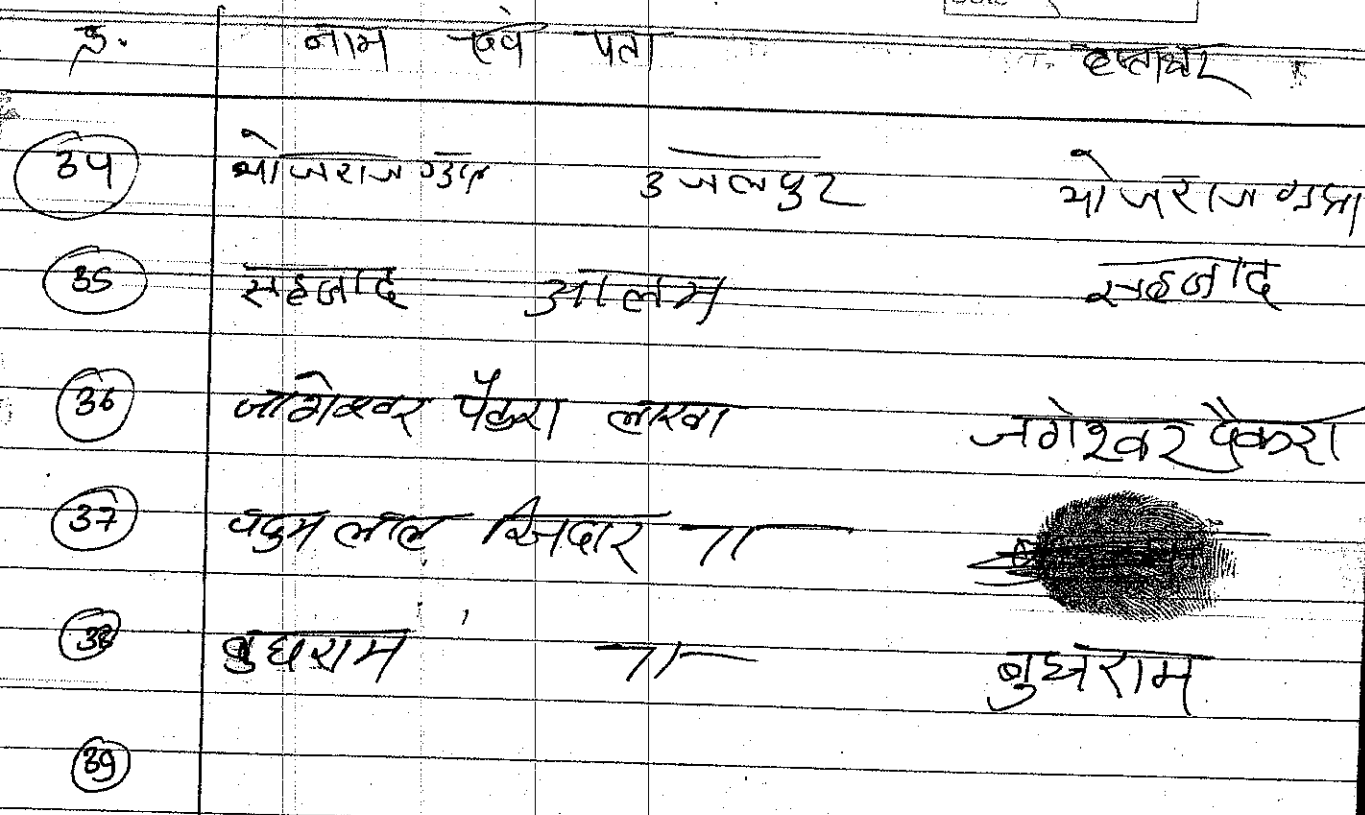 क्र. नाम एवं पता हस्ताक्षर
34 भोजराज गुप्ता उजलपुर भोजराज गुप्ता
35 सहजाद आलम सहजाद
36 जागेश्वर पैकरा लाखा जगेश्वर पैकरा
37 पदुम लाल -11-
38 बुधराम -11- बुधराम
39